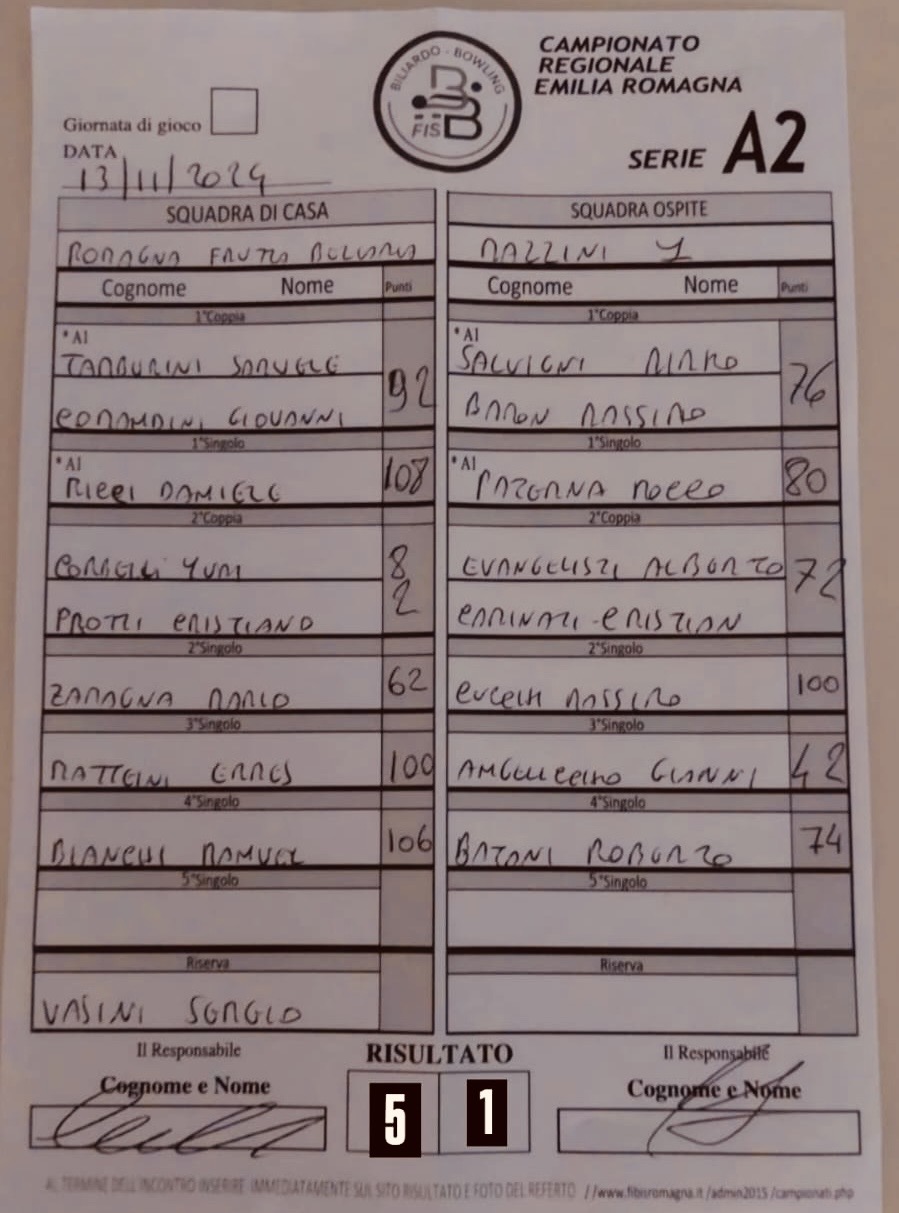 BILIARDO - BOWLING
FISBB
CAMPIONATO
REGIONALE
EMILIA ROMAGNA
SERIE A2
Giornata di gioco
DATA
13/11/2024
SQUADRA DI CASA
ROMAGNA FRUTTA
Cognome Nome Punti
1°Coppia
*A1
TAMBURINI SAMUELE
92
GIOVANNI
1°Singolo
*A1
RICCI DANIELE 108
2°Coppia
CORBELLI YURI
82
PROTTI CRISTIANO
2°Singolo
ZAMAGNA MARCO 62
3°Singolo
MATTEINI ERMES 100
4°Singolo
BIANCHI MANUEL 106
5°Singolo
Riserva
VASINI SERGIO
SQUADRA OSPITE
MAZZINI 1
Cognome Nome Punti
1°Coppia
*A1
SALVIGNI MIRKO
76
BARON MASSIMO
1°Singolo
*A1
PATERNA ROCCO 80
2°Coppia
EVANGELISTI ALBERTO
72
CARINATI CRISTIAN
2°Singolo
MASSIMO 100
3°Singolo
GIANNI 42
4°Singolo
BATONI ROBERTO 74
5°Singolo
Riserva
Il Responsabile
Cognome e Nome
RISULTATO
5 1
Il Responsabile
Cognome e Nome
AL TERMINE DELL'INCONTRO INSERIRE IMMEDIATAMENTE SUL SITO RISULTATO E FOTO DEL REFERTO //www.fibisromagna.it /admin2015 /campionati.php